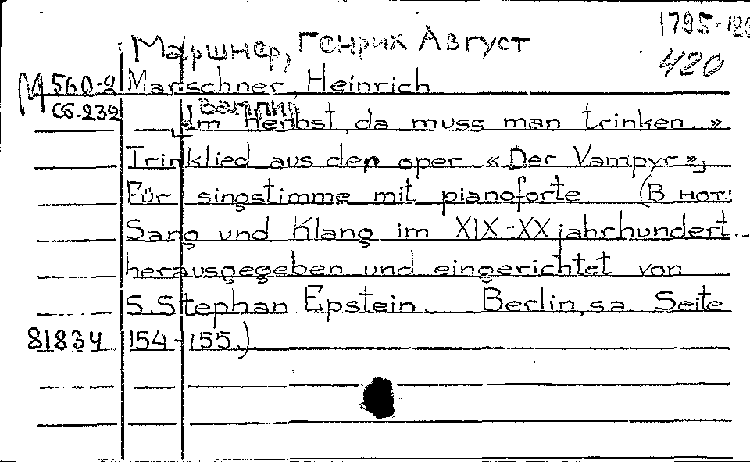 1795-186
Маршнер, Генрих Август
420
М 560-2 Marschner, Heinrich
Сб.232 [Вампир]
"Im Herbst, da muss man trinken"
Trinklied aus den oper «Der Vampyr»,
Für singstimme mit pianoforte (В нот:
Sang und Klang im XIX-XX jahrhundert.
herausgegeben und eingerichtet von
S. Stephan Epstein. Berlin, s.a. Seite
81834 154-155.)